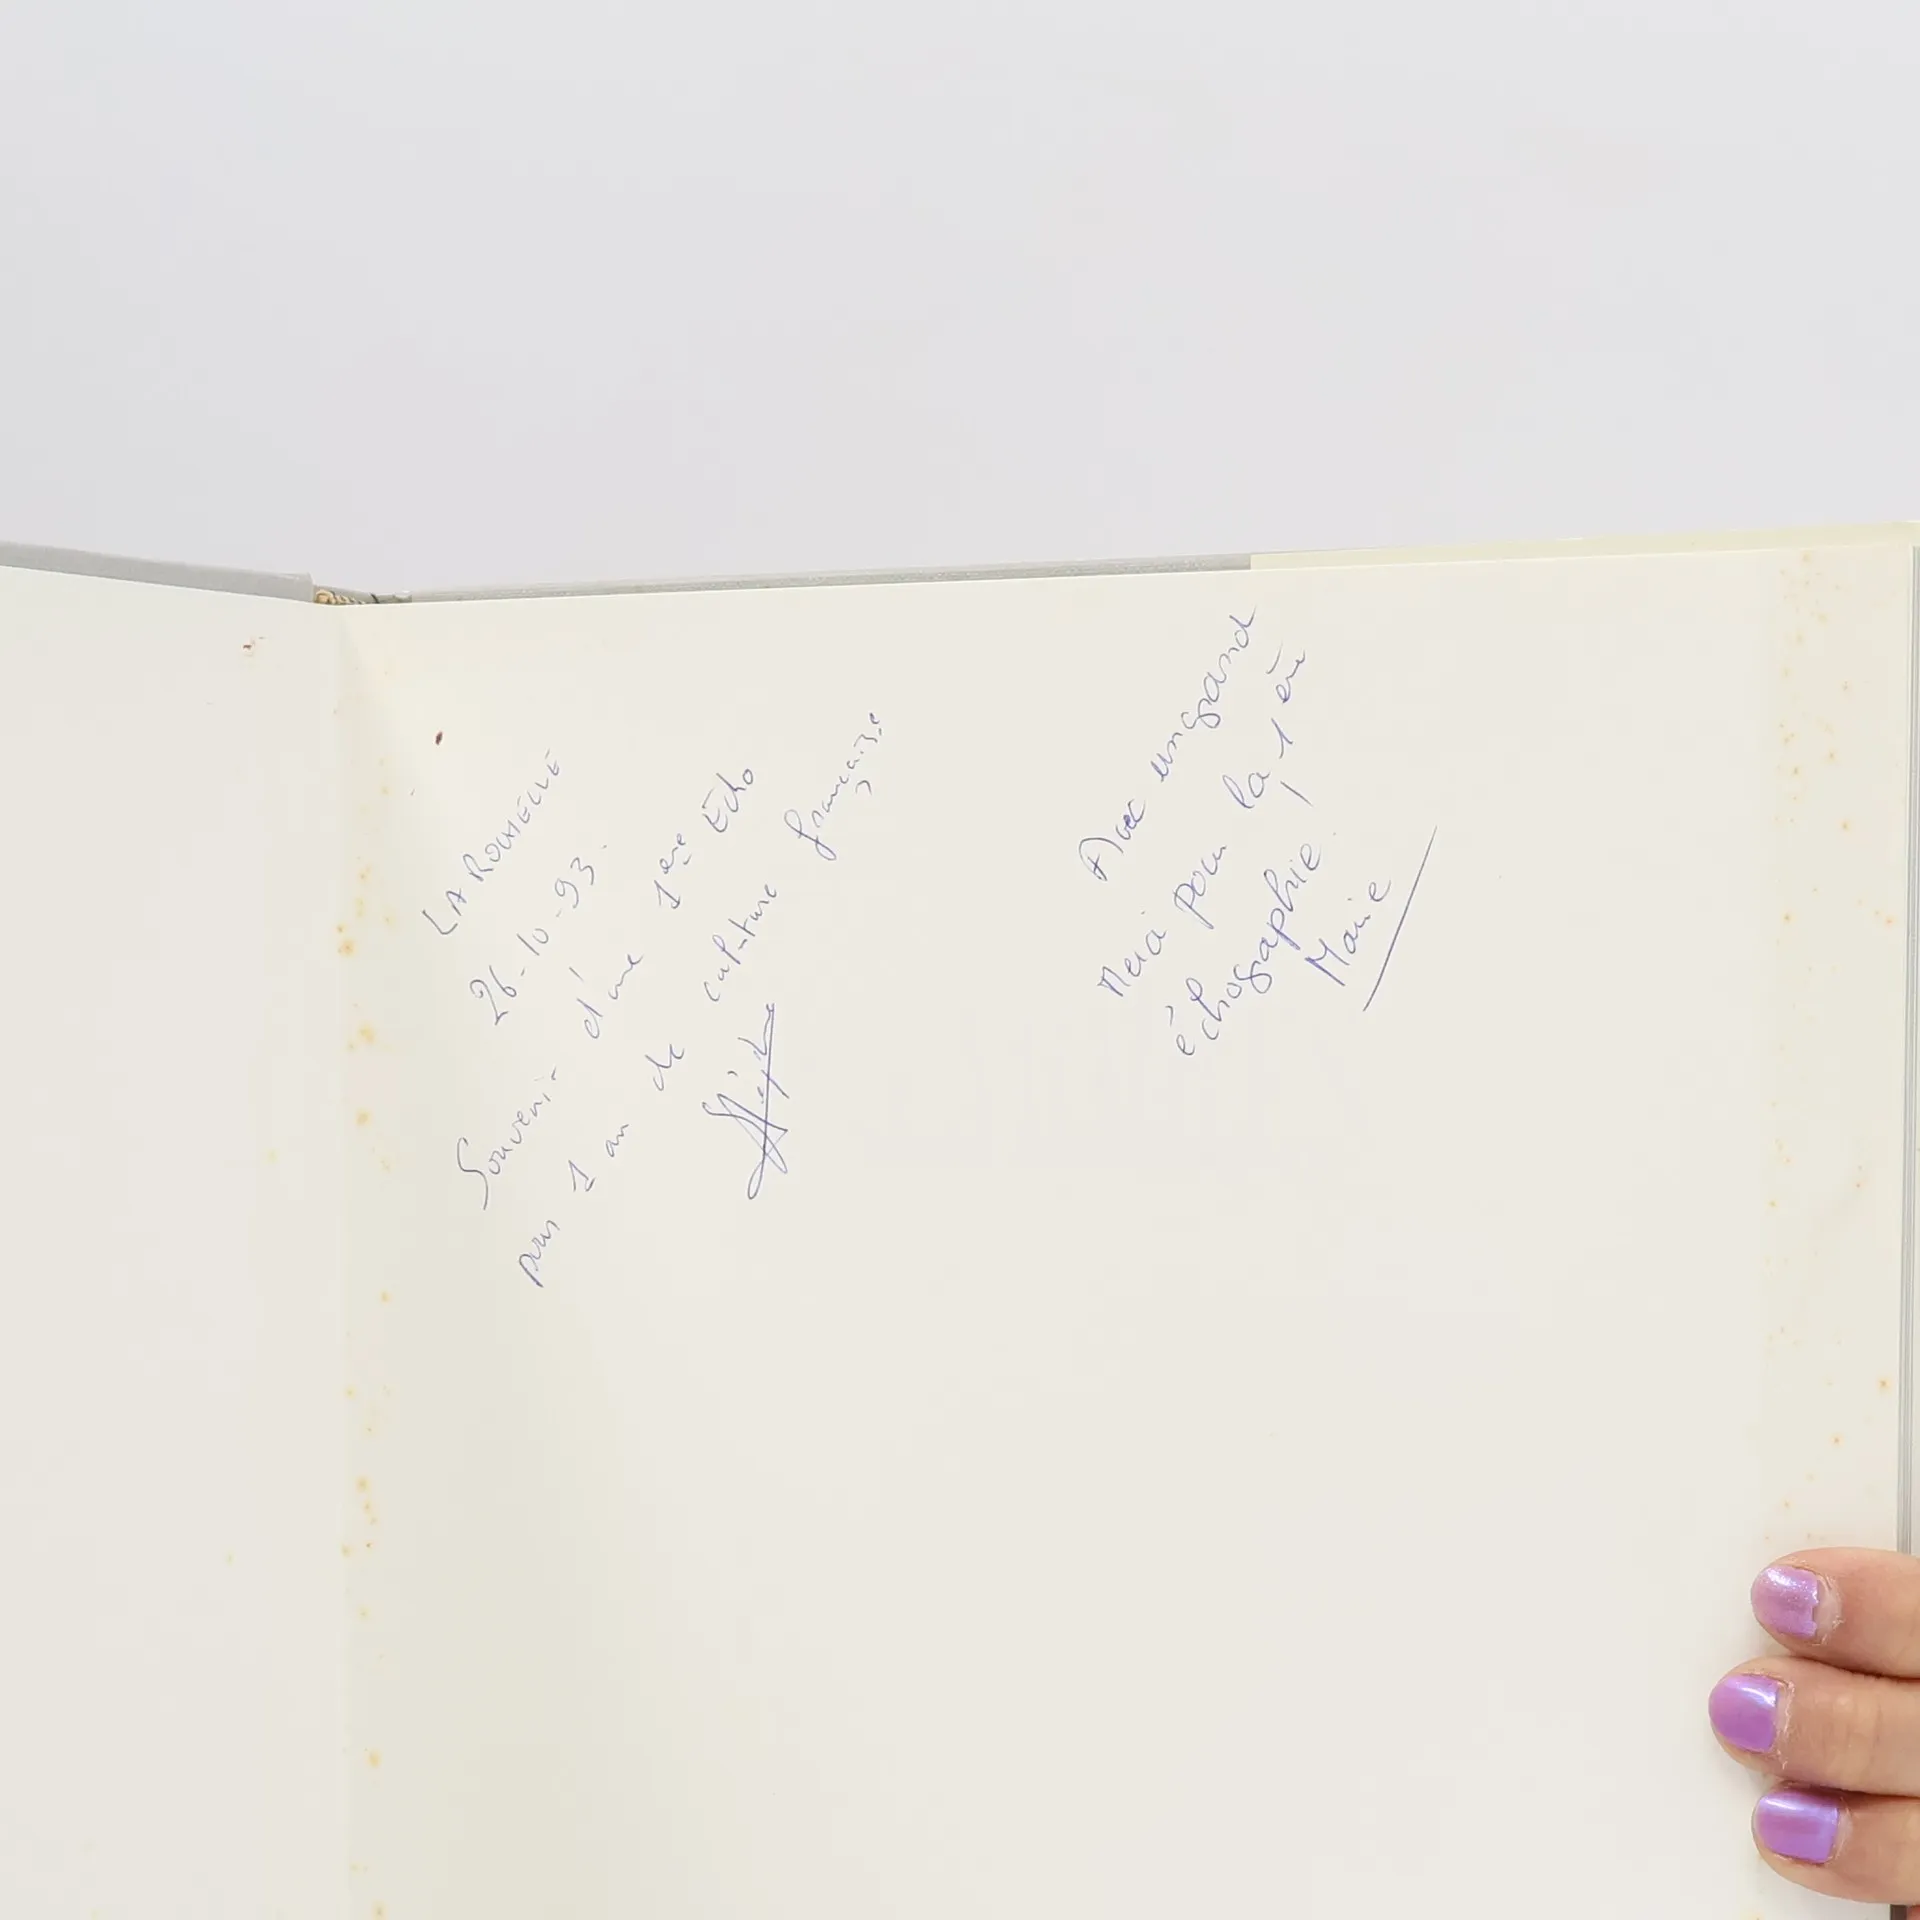 LA ROCHELLE
26-10-93.
Souvenir d'une 1ère Echo
pour 1 an de culture française
Stéphane
Avec un grand
Merci pour la 1ère
échographie.
Marie